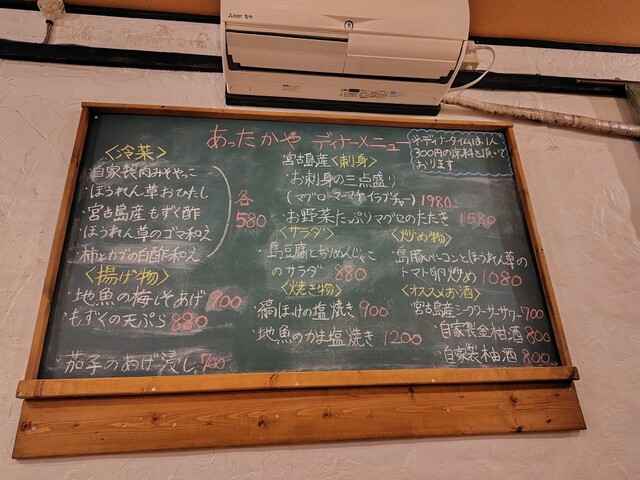 あったかや ディナーメニュー
※ディナータイムは、1人
300円の席料を頂いて
おります
<冷菜>
・自家製肉みそやっこ
・ほうれん草おひたし
・宮古島産もずく酢
・ほうれん草のゴマ和え
・柿とカブの白酢和え
各
580
<揚げ物>
・地魚の梅しそあげ 700
・もずくの天ぷら 880
・茄子のあげ浸し 700
宮古島産<刺身>
・お刺身の三点盛り
(マグロ・マーマチ・イラブチャー) 1980
・お野菜たっぷりマグロのたたき 1580
<サラダ>
・島豆腐とちりめんじゃこ
のサラダ 880
<焼き物>
・縞ほっけの塩焼き 900
・地魚のかま塩焼き 1200
<炒め物>
・島豚ベーコンとほうれん草の
トマト卵炒め 1080
<オススメお酒>
・宮古島産シークワーサーサワー 700
・自家製金柑酒 800
・自家製柚酒 800